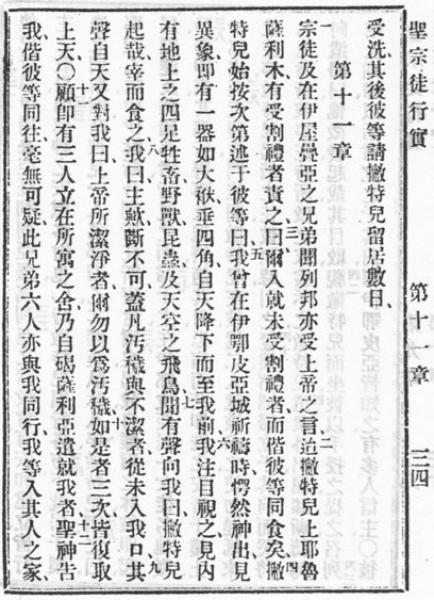 聖宗徒行實 第十一章 三四
受洗其後彼等請撇特兒留居數日、
第十一章
一宗徒及在伊屋疊亞之兄弟聞列邦亦受上帝之言、二迨撇特兒上耶魯
薩利木有受割禮者責之曰、三爾入就未受割禮者而偕彼等同食矣、四撇
特兒始按次第述于彼等曰、五我曾在伊鄂皮亞城祈禱時愕然神出見
異象即有一器如大袱垂四角自天降下而至我前、六我注目視之見內
有地上之四足牲畜野獸昆蟲及天空之飛鳥、七聞有聲向我曰撇特兒
起哉宰而食之、八我曰主歟斷不可、蓋凡汚穢與不潔者從未入我口、九其
聲自天又對我曰上帝所潔淨者爾勿以爲汚穢、十如是者三次皆復取
上天〇十一顧卽有三人立在所寓之舍乃自碣薩利亞遣就我者、十二聖神告
我偕彼等同往、毫無可疑此兄弟六人亦與我同行我等入其人之家、